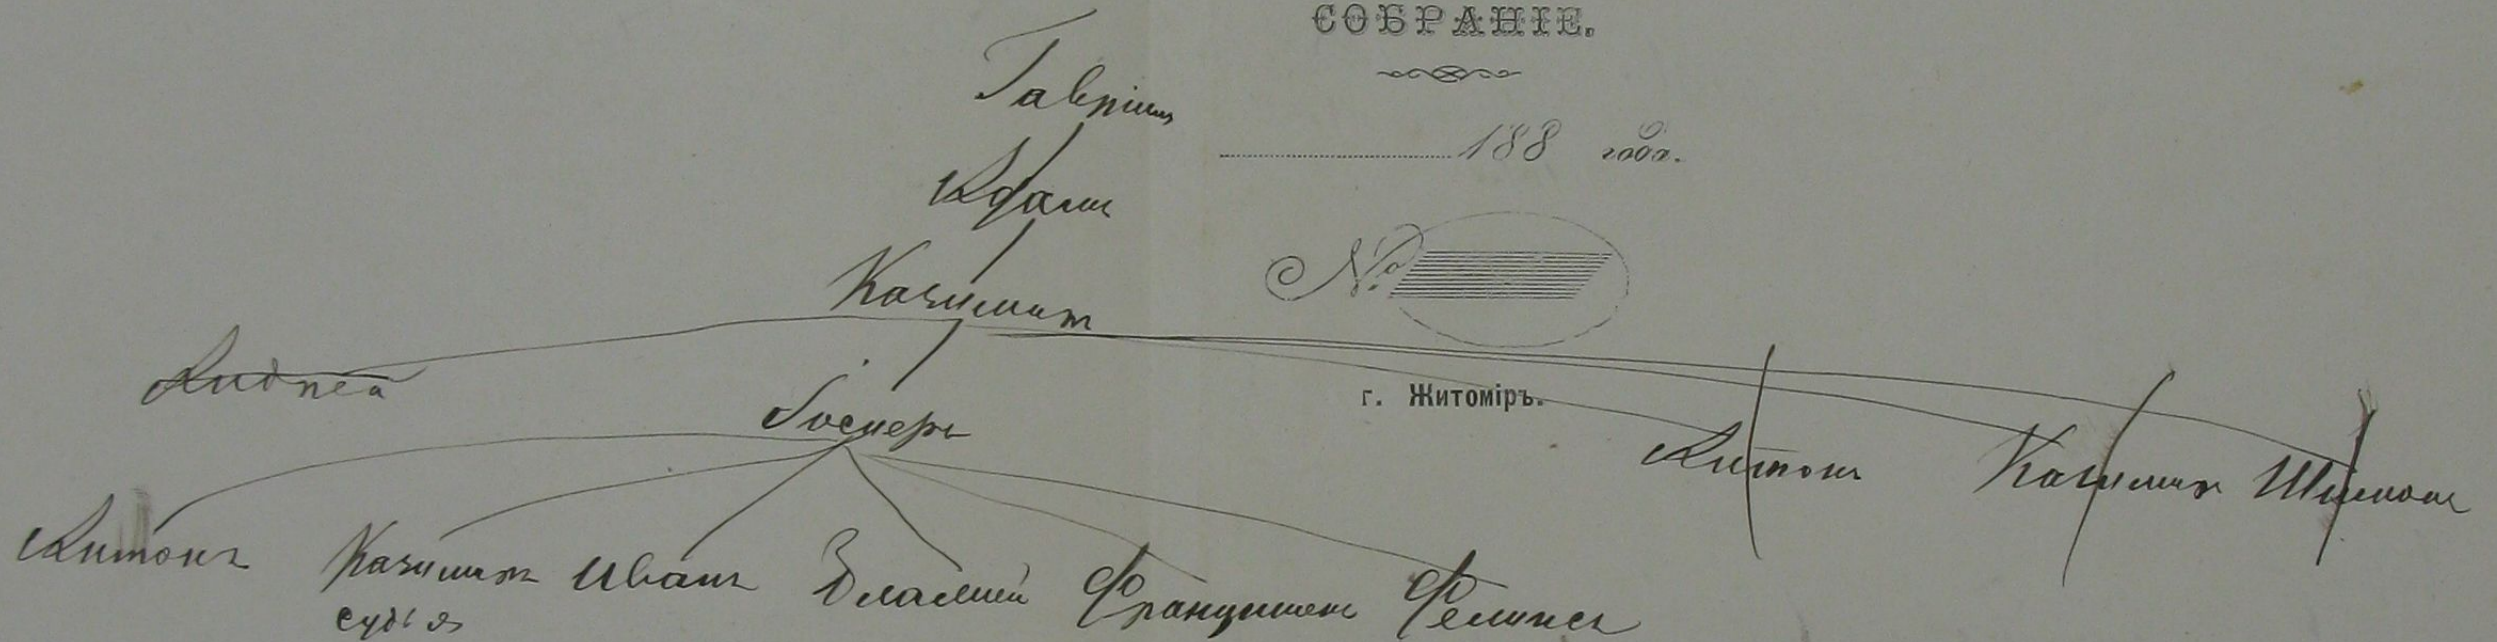 СОБРАНІЕ.
Гавріилъ
188 года.
Адамъ
№
Казимиръ
Андрей
г. Житоміръ.
Антонъ Казимиръ Шимонъ
Антонъ Казимиръ Иванъ Францишекъ Феликсъ
судья